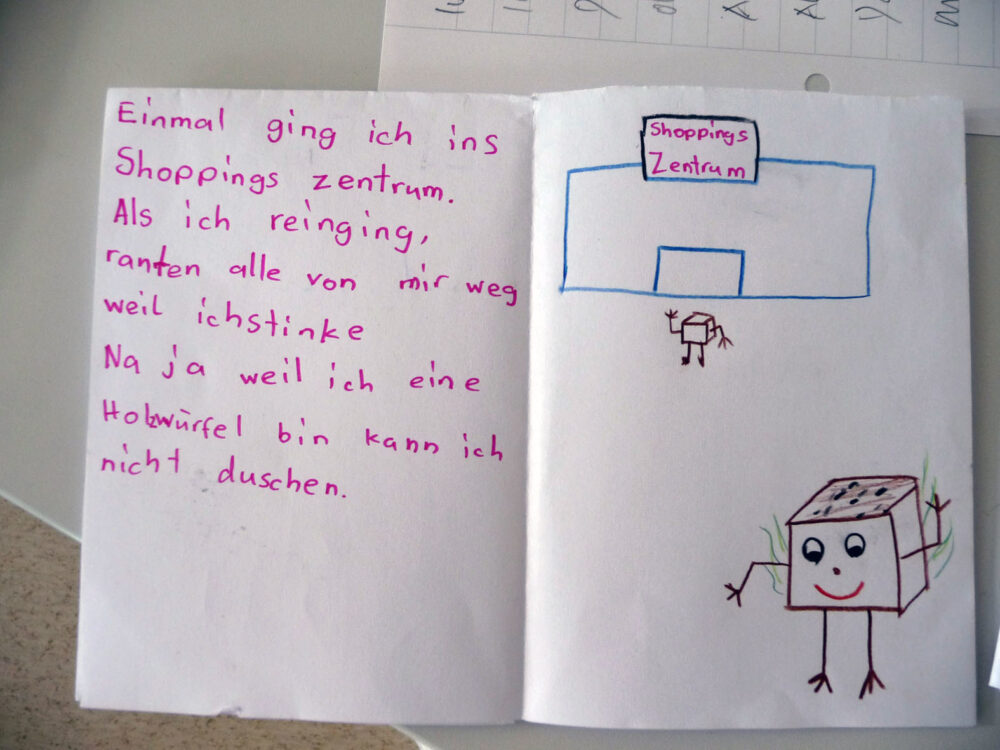 Einmal ging ich ins
Shoppings zentrum.
Als ich reinging,
ranten alle von mir weg
weil ichstinke
Na ja weil ich eine
Holzwürfel bin kann ich
nicht duschen.
Shoppings
Zentrum